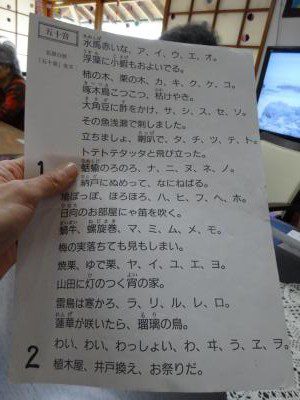 五十音
水馬赤いな、ア、イ、ウ、エ、オ。
浮藻に小蝦もおよいでる。
柿の木、栗の木、カ、キ、ク、ケ、コ。
啄木鳥こつこつ、枯けやき。
大角豆に酢をかけ、サ、シ、ス、セ、ソ。
その魚浅瀬で刺しました。
立ちましょ、喇叭で、タ、チ、ツ、テ、ト。
トテトテタッタと飛び立った。
1
蛞蝓のろのろ、ナ、ニ、ヌ、ネ、ノ。
納戸にぬめって、なにねばる。
鳩ぽっぽ、ほろほろ、ハ、ヒ、フ、ヘ、ホ。
日向のお部屋にゃ笛を吹く。
蝸牛、螺旋巻、マ、ミ、ム、メ、モ。
梅の実落ちても見もしまい。
焼栗、ゆで栗、ヤ、イ、ユ、エ、ヨ。
山田に灯のつく宵の家。
雷鳥は寒かろ、ラ、リ、ル、レ、ロ。
蓮華が咲いたら、瑠璃の鳥。
2
わい、わい、わっしょい、わ、ヰ、う、ヱ、ヲ。
植木屋、井戸換え、お祭りだ。